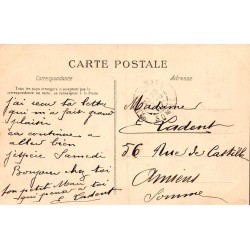 CARTE POSTALE
Correspondance
Adresse
Tous les pays étrangers n'acceptent pas la
correspondance au verso, se renseigner à la Poste
j'ai reçu ta lettre
qui m'a fait grand
plaisir
ça continue a
aller bien
j'espère Samedi
Bonjour chez toi
ton petit Mari
qui pense à toi
E Cadent
Madame
Cadent
56 Rue de Castille
Amiens
Somme